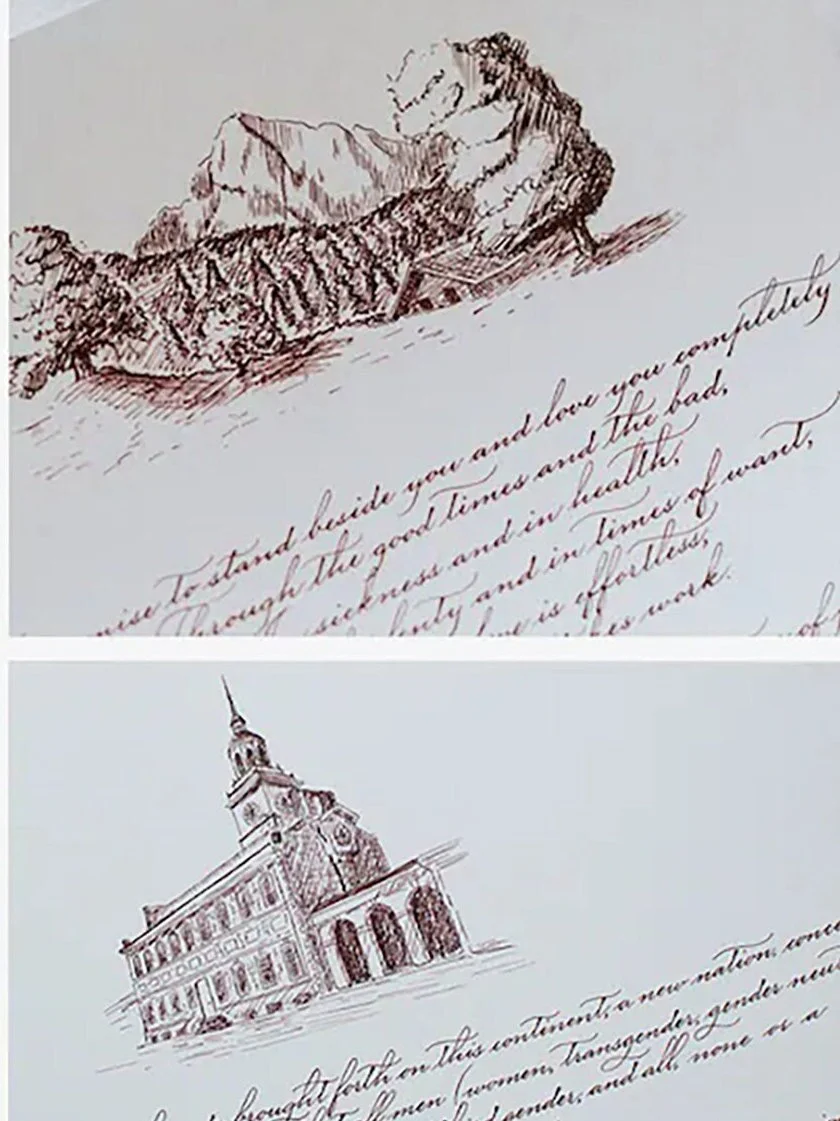 to stand beside you and love you completely
Through the good times and the bad,
sickness and in health,
and in times of want,
is effortless,
work.
brought forth on this continent, a new nation,
all men (women, transgender, gender
gender, and all, none or a